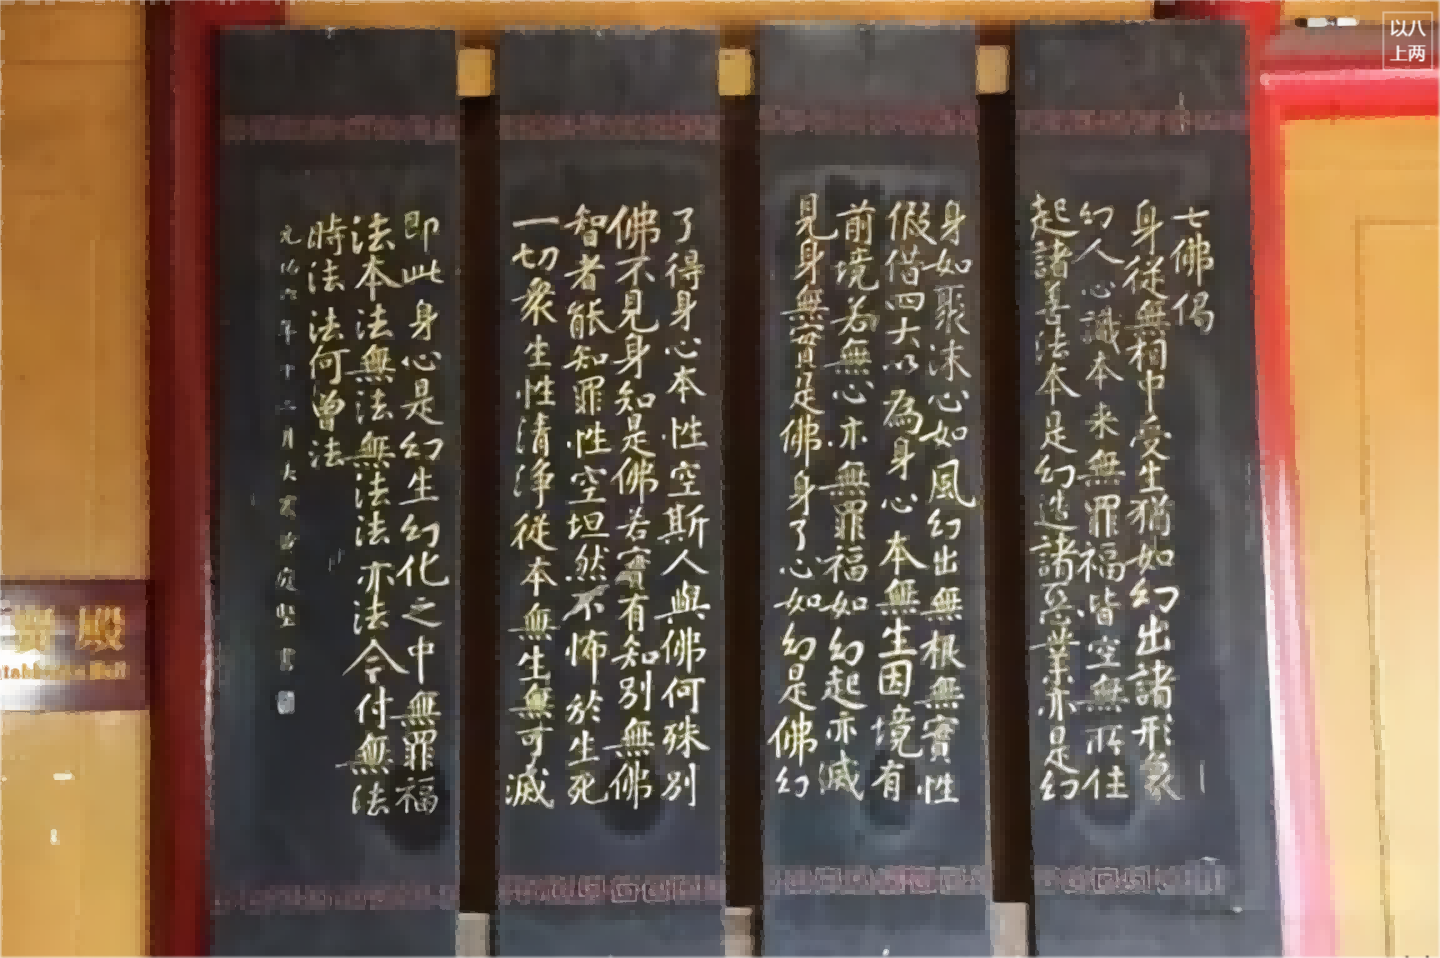 七佛偈
身從無相中受生猶如幻出諸形象
幻人心識本来無罪福皆空無所住
起諸善法本是幻造諸惡業亦是幻
身如聚沫心如風幻出無根無實性
假借四大以為身心本無生因境有
前境若無心亦無罪福如幻起亦滅
見身無實是佛身了心如幻是佛幻
了得身心本性空斯人與佛何殊别
佛不見身知是佛若實有知别無佛
智者能知罪性空坦然不怖於生死
一切衆生性清净從本無生無可滅
即此身心是幻生幻化之中無罪福
法本法無法無法法亦法今付無法
時法法何曾法
元祐六年十二月大寒
堅書
殿
Hall
以八
上两